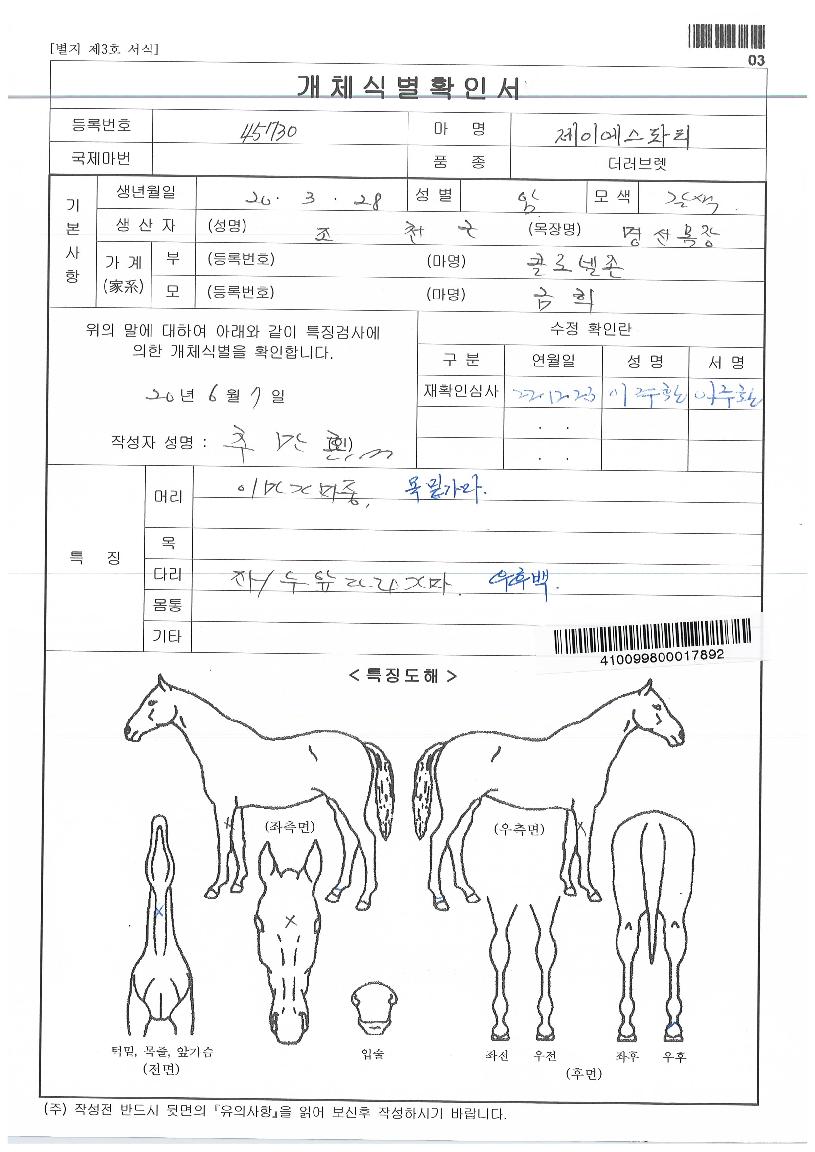 [별지 제3호 서식]
03
개체식별확인서
등록번호 45730 마 명 제이에스파티
국제마번 품 종 더러브렛
기본사항
생년월일 20. 3. 28 성별 암 모색 갈색
생산자 (성명) 조 천 군 (목장명) 명선목장
가계(家系) 부 (등록번호) (마명) 콜로넬존
모 (등록번호) (마명) 금희
위의 말에 대하여 아래와 같이 특징검사에
의한 개체식별을 확인합니다.
20년 6월 7일
작성자 성명 : (인)
수정 확인란
구분 연월일 성명 서명
재확인심사 22.12.23 이주환 이주환
. .
. .
특 징
머리 이마가마중, 목밑가마.
목
다리 좌/우앞다리가마. 우후백.
몸통
기타
410099800017892
< 특징도해 >
(좌측면) (우측면)
턱밑, 목줄, 앞가슴 입술 좌전 우전 좌후 우후
(전면) (후면)
(주) 작성전 반드시 뒷면의 『유의사항』을 읽어 보신후 작성하시기 바랍니다.